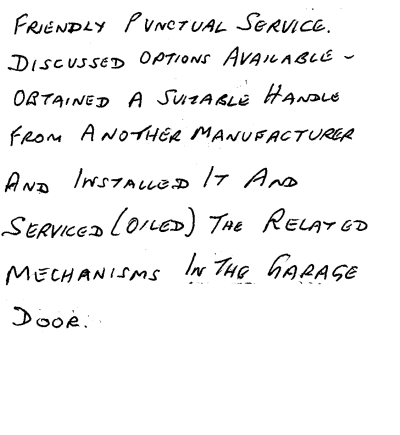 FRIENDLY PUNCTUAL SERVICE.
DISCUSSED OPTIONS AVAILABLE -
OBTAINED A SUITABLE HANDLE
FROM ANOTHER MANUFACTURER
AND INSTALLED IT AND
SERVICED (OILED) THE RELATED
MECHANISMS IN THE GARAGE
DOOR.